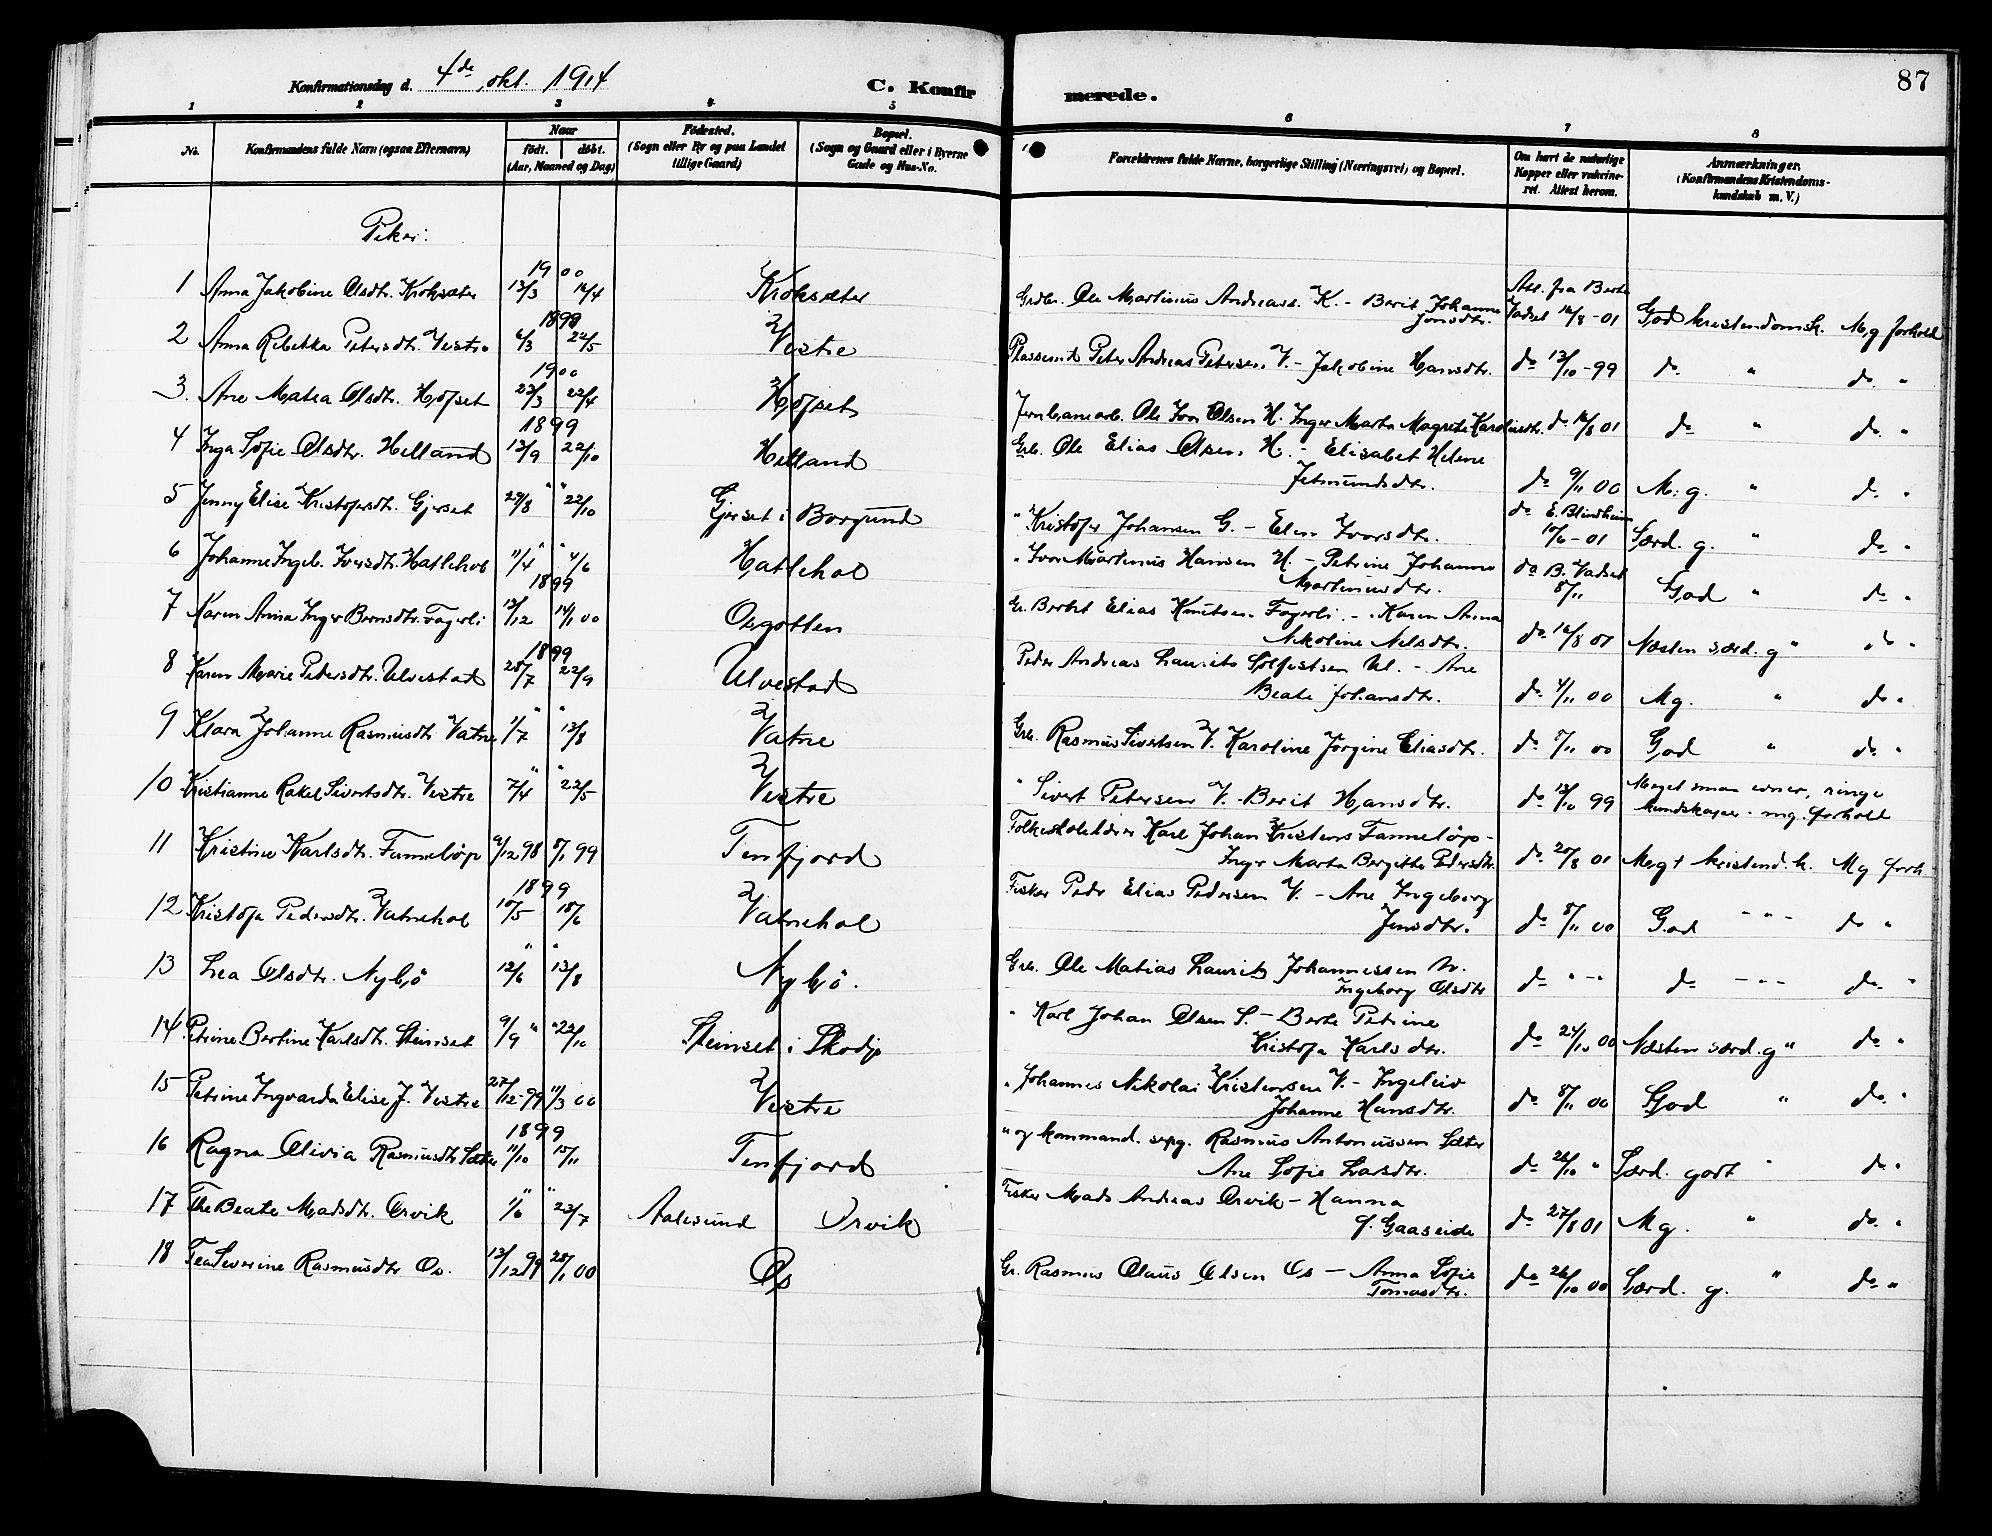 87
Konfirmationsdag d. 4de okt. 1914
C. Konfirmerede.
1 2 3 4 5 6 7 8
No. Konfirmandens fulde Navn (ogsaa Efternavn) Naar født. døbt. (Aar, Maaned og Dag) Fødested. (Sogn eller By og paa Landet tillige Gaard) Bopæl. (Sogn og Gaard eller i Byerne Gade og Hus-No. Forældrenes fulde Navne, borgerlige Stilling (Næringsvei) og Bopæl. Om havt de naturlige Kopper eller vakcineret. Attest herom. Anmærkninger. (Konfirmandens Kristendomskundskab m. V.)
Piker:
1 Anna Jakobine Olsdtr. Kroksæter 1900 13/3 16/4 Kroksæter Grdbr. Ole Martinius Andreass. K. - Berit Johanne Jonsdtr. Att. fra Berte Vadset 16/8-01 God kristendomsk. M,g forhold
2 Anna Rebekka Petersdtr. Vestre 1899 6/3 22/5 Vestre Plassemd. Peter Andreas Petersen V. - Jakobine Hansdtr. do 13/10-99 do. " do. "
3. Ane Matea Olsdtr. Hofset 1900 23/3 22/4 Hofset Jernbanearb. Ole Ivar Olsen H. Inger Marta Magrete Karolusdtr. do 16/8 01 do " do. "
4 Inga Sofie Olsdtr. Helland 1899 13/9 22/10 Helland Grb. Ole Elias Olsen H. - Elisabet Helene Jetmundsdtr. do 9/11 00 M.g. " do. "
5 Jenny Elise Kristofersdtr. Gjerset 29/8 " 22/10 " Gjerset i Borgund " Kristofer Johansen G. - Elen Ivarsdtr. do E. Blindheim 10/6-01 Særd. g. " do "
6 Johanne Ingeb. Iversdtr. Hatlehol 11/4 " 4/6 " Hatlehol " Ivar Martinus Hansen H. - Petrine Johanne Martinusdtr. do B. Vadset 8/11 God " do "
7 Karen Anna Inger Berntsdtr. Fagerli 1899 13/12 14/1 00 Osgotten Gr. Berbet Elias Knutsen Fagerli - Karen Anna Nikoline Nilsdtr. do 16/8 01 Næsten særd. g " do "
8 Karen Marie Pedersdtr. Ulvestad 1899 28/7 22/9 Ulvestad Peder Andreas Laurits Solfestsen Ul. - Ane Beate Johansdtr. do 4/11 00 Mg. " do "
9 Klara Johanne Rasmusdtr Vatne 1/7 " 13/8 " Vatne Grb. Rasmus Sivertsen V. Karoline Jørgine Eliasdtr. do 8/11 00 God " do. "
10 Kristianne Rakel Sivertsdtr. Vestre 7/4 " 22/5 " Vestre " Sivert Petersen V. - Berit Hansdtr. do 13/10 99 Meget smaa evner, ringe kundskaper - mg. forhold
11 Kristine Karlsdtr. Fannelöp 9/12 98 8/1 99 Tenfjord Folkeskolelærer Karl Johan Kristens Fannelöp - Inger Marta Bergitte Pedersdtr. do 20/8 01 Meget kristend. k. Mg forh.
12 Kristofa Pedersdtr. Vatnehol 1899 10/5 18/6 Vatnehol Fisker Peder Elias Pedersen V. - Ane Ingeborg Jensdtr. do 8/11 00 God - " - do "
13 Lea Olsdtr. Nybö 12/6 " 13/8 " Nybö. Grb. Ole Matias Laurits Johannessen N. Ingeborg Olsdtr do " - " do - " - do. "
14 Petrine Bertine Karlsdtr. Steinset 9/9 " 22/10 " Steinset i Skodje " Karl Johan Olsen S. - Berte Petrine Kristofa Karlsdtr. do 24/10 00 Næsten særd. g " do. "
15 Petrine Ingvarda Elise J. Vestre 27/12-99 11/3 00 Vestre " Johannes Nikolai Kristensen V. - Ingeleiv Johanne Hansdtr. do 8/11 00 God " do. "
16 Ragna Olivia Rasmusdtr Sæter 1899 11/10 15/11 Tenfjord " og kommand. serg. Rasmus Antoniussen Sæter Ane Sofie Larsdtr. do 26/10 " Særd. godt " do. "
17 The Beate Madsdtr. Orvik 1/6 " 23/7 " Aalesund Orvik Fisker Mads Andreas Orvik - Hanna f. Gaaseide do 27/8 01 Mg. " do. "
18 Tea Severine Rasmusdtr Os. 13/12 99 28/1 00 Os Gr. Rasmus Olaus Olsen Os - Anna Sofie Tomasdtr. do 26/10 00 Særd. g. " do "